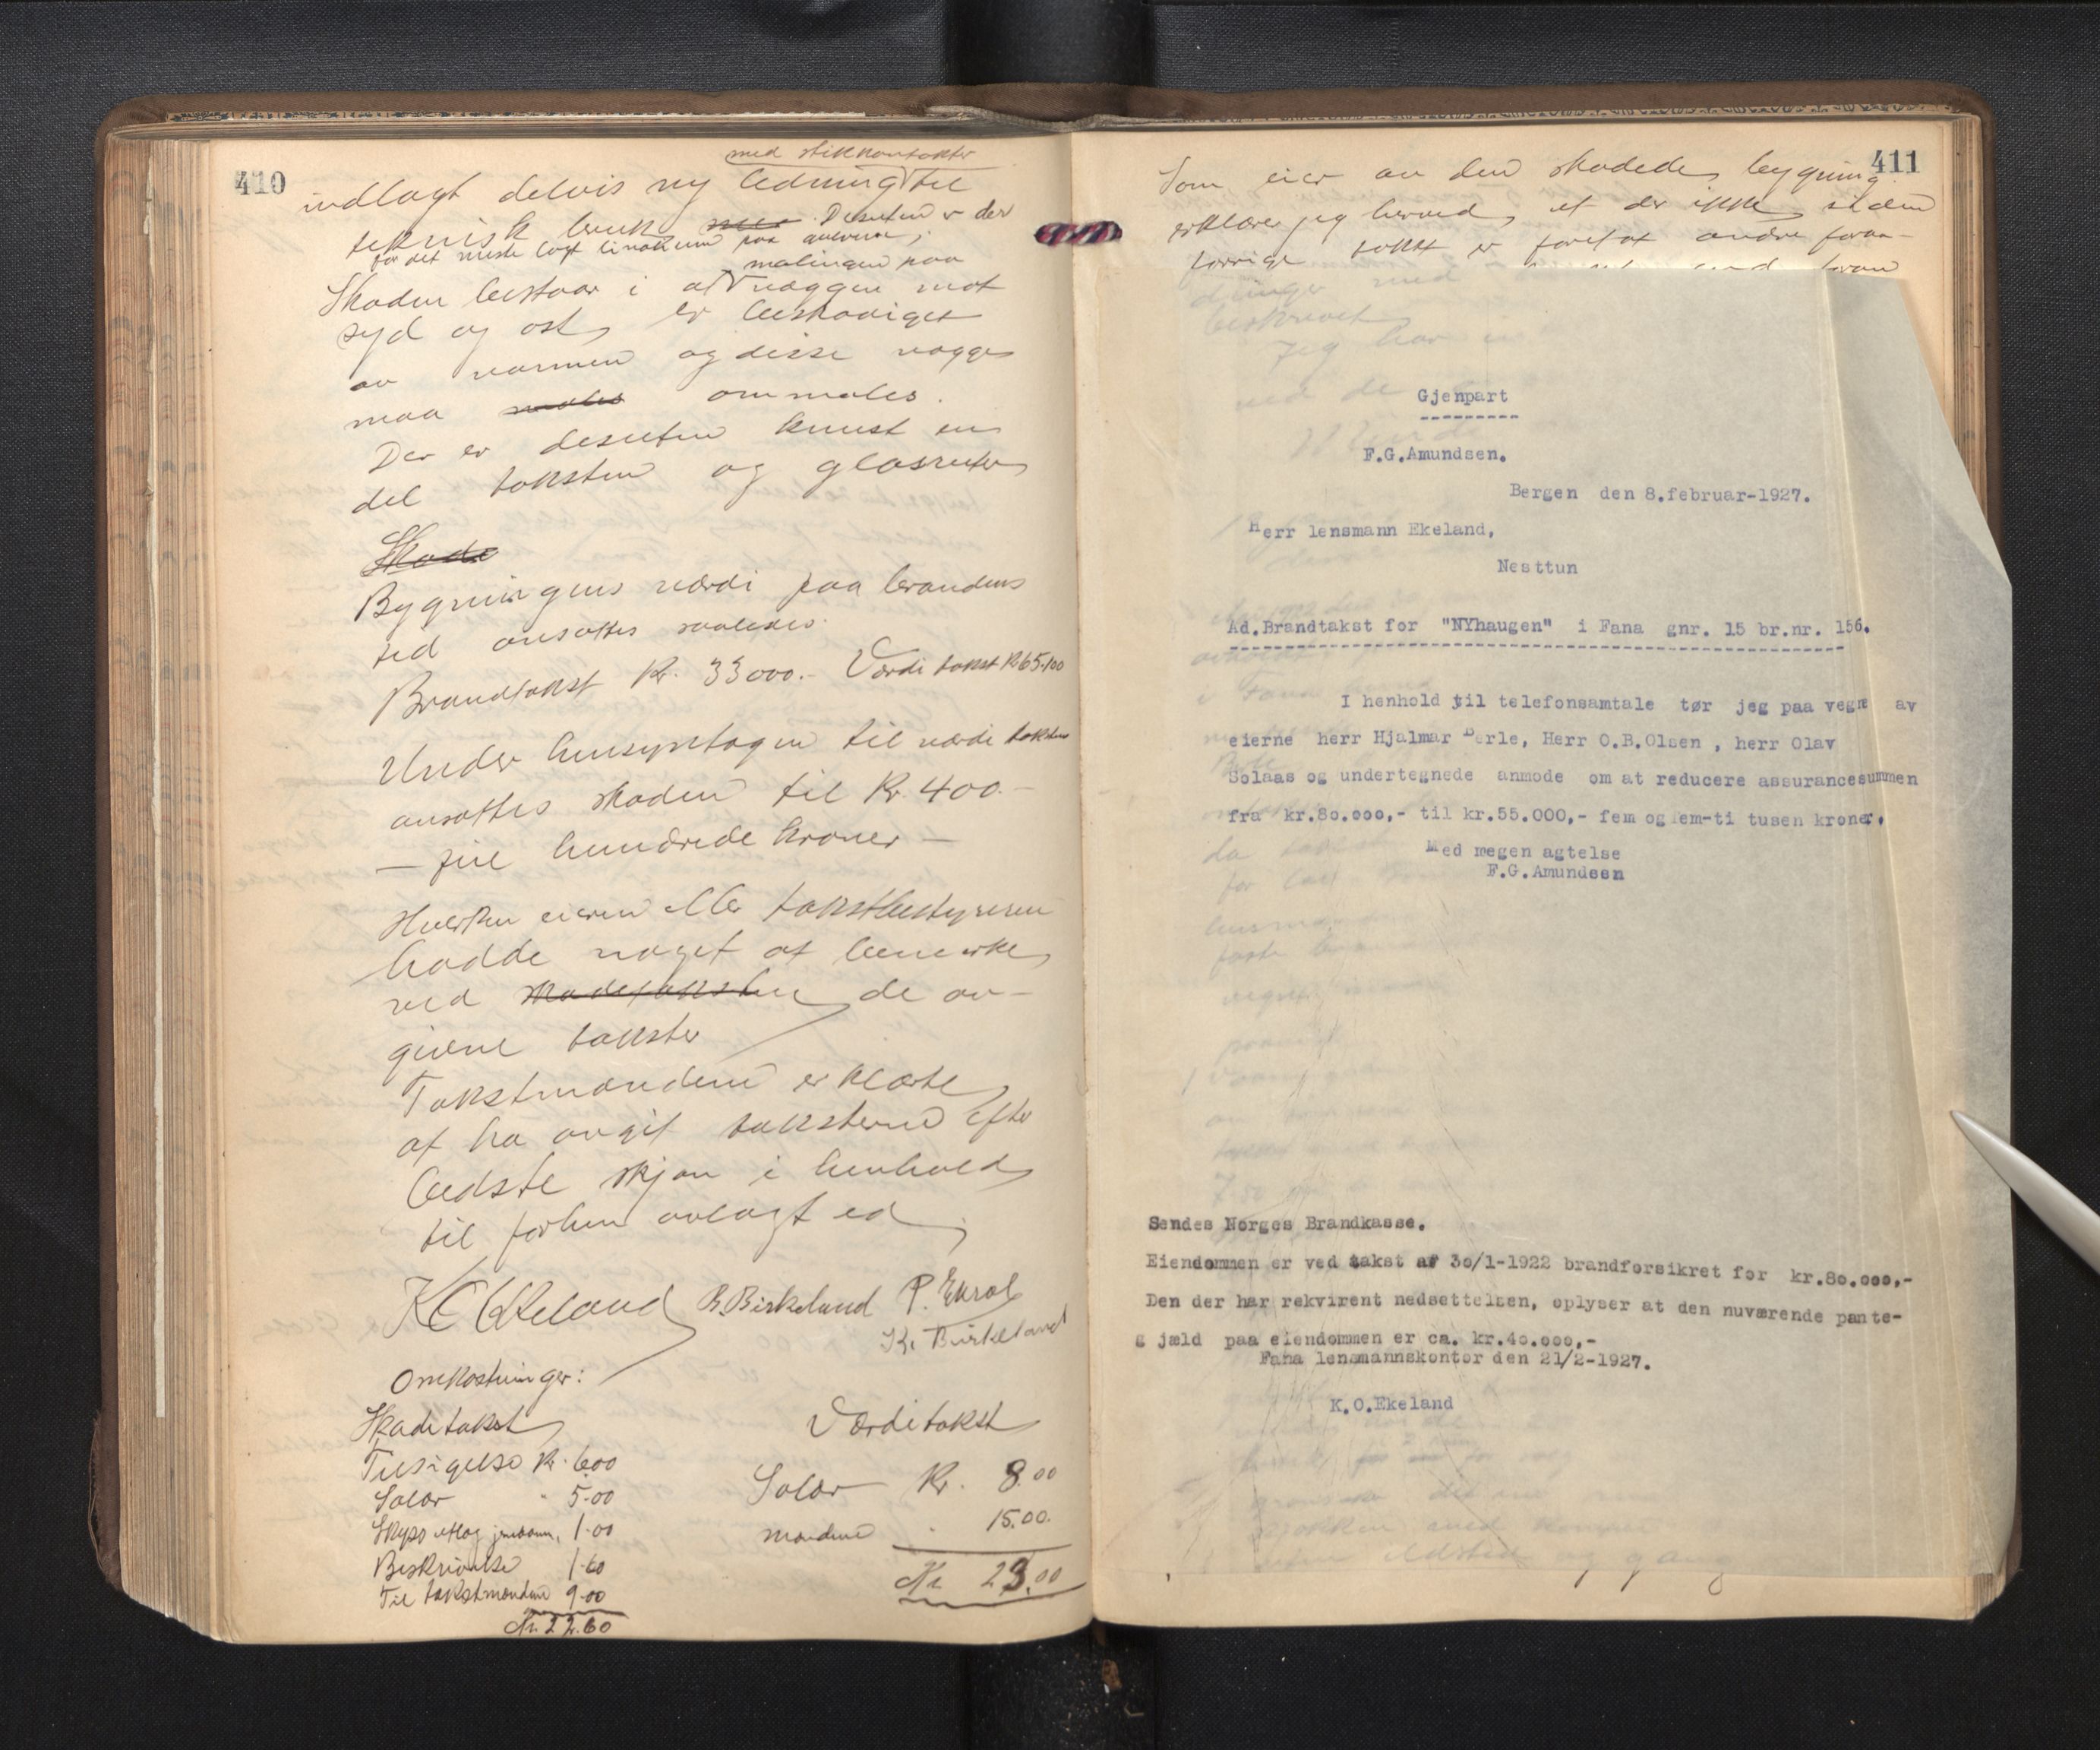 410
med stikkontakter
indlagt delvis ny ledning til
teknisk bruk. Desuten er der
for det meste lagt linoleum paa gulvene,
malingen paa
Skaden bestaar i at væggen mot
syd og ost er beskadiget
av varmen og disse vægge
maa males ommales.
Der er desuten knust en
del taksten og glasruter
Skade
Bygningens værdi paa brandens
tid ansættes saaledes:
Brandtakst Kr. 33000.- Værditakst Kr 65.100
Under hensyntagen til værditaksten
ansættes skaden til Kr. 400.-
- fire hundrede kroner -
Hverken eieren eller takstbestyreren
hadde noget at bemerke
ved skadetaksten de av-
givne takster
Takstmændene erklærte
at ha avgit taksterne efter
bedste skjøn i henhold
til forhen avlagt ed.
K O Ekeland B. Birkeland P. Ekrol
K. Birkeland
Omkostninger:
Skadetakst Værditakst
Tilsigelse Kr. 6.00
Salær " 5.00 Salær Kr. 8.00
Skyss 1.00 mændene " 15.00.
Beskrivelse 1.60
Til takstmændene 9.00 Kr. 23.00
Kr. 22.60
411
Som eier av den skadede bygning
erklærer jeg herved, at der ikke siden
forrige takst er foretat andre foran-
dringer med
beskrevet
Jeg har
ved de
Gjenpart
F.G.Amundsen.
Bergen den 8.februar-1927.
Herr lensmann Ekeland,
Nesttun
Ad.Brandtakst for "NYhaugen" i Fana gnr. 15 br.nr. 156.
I henhold til telefonsamtale tør jeg paa vegne av
eierne herr Hjalmar Berle, Herr O.B.Olsen , herr Olav
Solaas og undertegnede anmode om at reducere assurancesummen
fra kr.80.000,- til kr.55.000,- fem og fem-ti tusen kroner.
Med megen agtelse
F.G.Amundsen
Sendes Norges Brandkasse.
Eiendommen er ved takst af 30/1-1922 brandforsikret for kr.80.000,-
Den der har rekvirent nedsettelsen, oplyser at den nuværende pante-
g jæld paa eiendommen er ca. kr.40.000,-
Fana lensmannskontor den 21/2-1927.
K.O.Ekeland